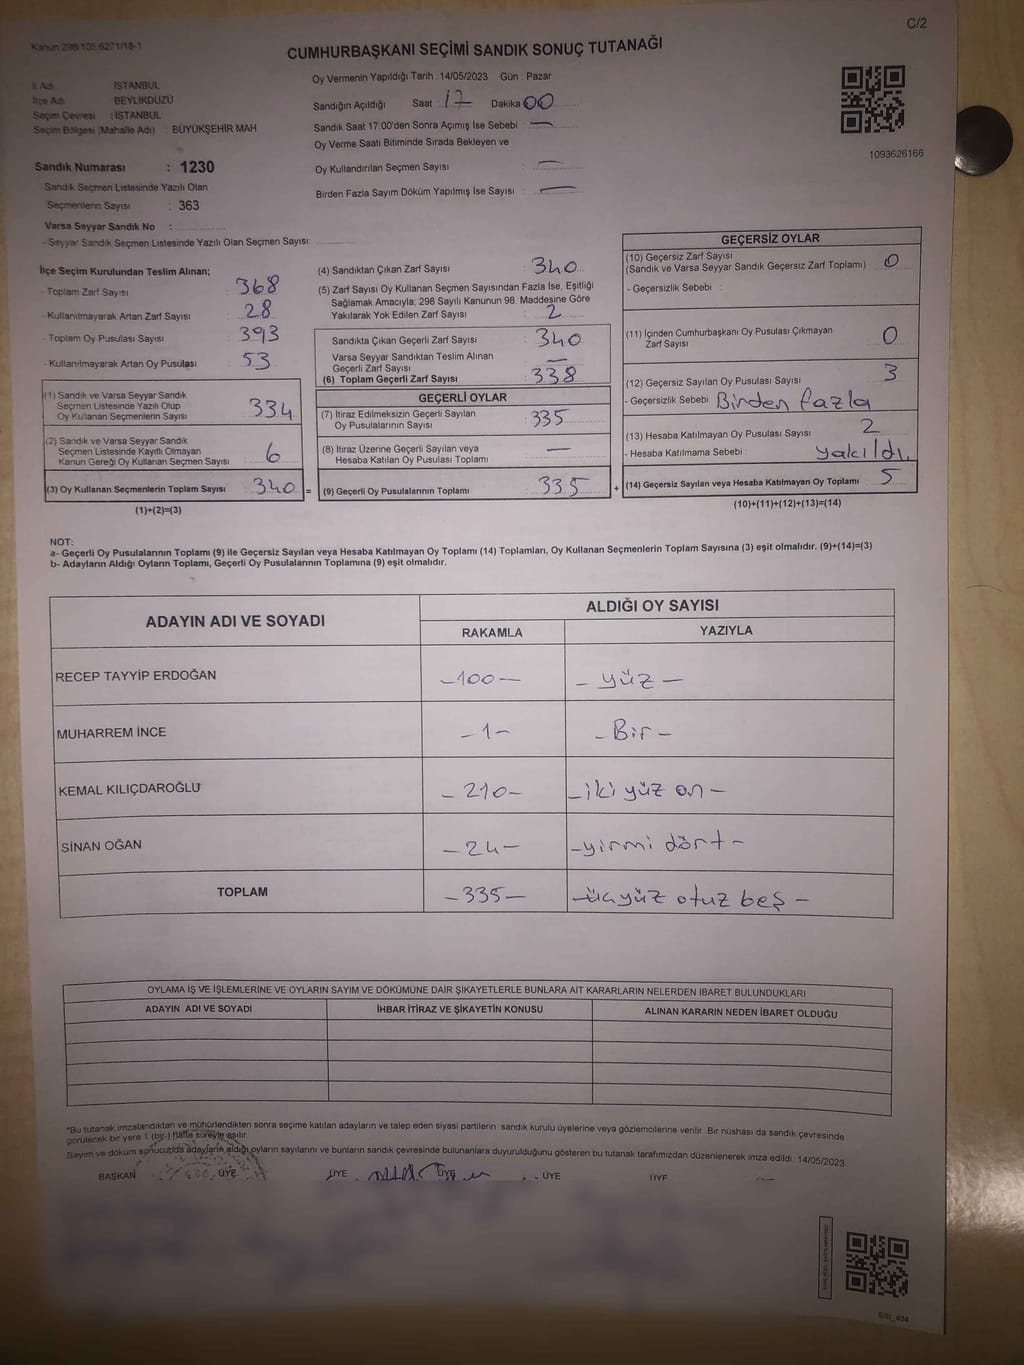 C/2
Kanun 298/105,6271/18-1
CUMHURBAŞKANI SEÇİMİ SANDIK SONUÇ TUTANAĞI
İl Adı : İSTANBUL
İlçe Adı : BEYLİKDÜZÜ
Seçim Çevresi : İSTANBUL
Seçim Bölgesi (Mahalle Adı) : BÜYÜKŞEHİR MAH
Oy Vermenin Yapıldığı Tarih : 14/05/2023 Gün : Pazar
Sandığın Açıldığı Saat : 17 Dakika 00
Sandık Saat 17:00'den Sonra Açımış İse Sebebi : —
Oy Verme Saati Bitiminde Sırada Bekleyen ve
Oy Kullandırılan Seçmen Sayısı : —
Birden Fazla Sayım Döküm Yapılmış İse Sayısı : —
1093626166
Sandık Numarası : 1230
- Sandık Seçmen Listesinde Yazılı Olan
Seçmenlerin Sayısı : 363
Varsa Seyyar Sandık No :
- Seyyar Sandık Seçmen Listesinde Yazılı Olan Seçmen Sayısı:
İlçe Seçim Kurulundan Teslim Alınan;
- Toplam Zarf Sayısı : 368
- Kullanılmayarak Artan Zarf Sayısı : 28
- Toplam Oy Pusulası Sayısı : 393
- Kullanılmayarak Artan Oy Pusulası : 53
(1) Sandık ve Varsa Seyyar Sandık
Seçmen Listesinde Yazılı Olup
Oy Kullanan Seçmenlerin Sayısı 334
(2) Sandık ve Varsa Seyyar Sandık
Seçmen Listesinde Kayıtlı Olmayan
Kanun Gereği Oy Kullanan Seçmen Sayısı 6
(3) Oy Kullanan Seçmenlerin Toplam Sayısı 340 =
(1)+(2)=(3)
(4) Sandıktan Çıkan Zarf Sayısı : 340
(5) Zarf Sayısı Oy Kullanan Seçmen Sayısından Fazla İse, Eşitliği
Sağlamak Amacıyla; 298 Sayılı Kanunun 98. Maddesine Göre
Yakılarak Yok Edilen Zarf Sayısı : 2
Sandıkta Çıkan Geçerli Zarf Sayısı : 340
Varsa Seyyar Sandıktan Teslim Alınan
Geçerli Zarf Sayısı : —
(6) Toplam Geçerli Zarf Sayısı : 338
GEÇERLİ OYLAR
(7) İtiraz Edilmeksizin Geçerli Sayılan
Oy Pusulalarının Sayısı : 335
(8) İtiraz Üzerine Geçerli Sayılan veya
Hesaba Katılan Oy Pusulası Toplamı : —
(9) Geçerli Oy Pusulalarının Toplamı : 335 +
GEÇERSİZ OYLAR
(10) Geçersiz Zarf Sayısı
(Sandık ve Varsa Seyyar Sandık Geçersiz Zarf Toplamı) : 0
- Geçersizlik Sebebi :
(11) İçinden Cumhurbaşkanı Oy Pusulası Çıkmayan
Zarf Sayısı : 0
(12) Geçersiz Sayılan Oy Pusulası Sayısı : 3
- Geçersizlik Sebebi : Birden fazla
(13) Hesaba Katılmayan Oy Pusulası Sayısı : 2
- Hesaba Katılmama Sebebi : yakıldı.
(14) Geçersiz Sayılan veya Hesaba Katılmayan Oy Toplamı : 5
(10)+(11)+(12)+(13)=(14)
NOT:
a- Geçerli Oy Pusulalarının Toplamı (9) ile Geçersiz Sayılan veya Hesaba Katılmayan Oy Toplamı (14) Toplamları, Oy Kullanan Seçmenlerin Toplam Sayısına (3) eşit olmalıdır. (9)+(14)=(3)
b- Adayların Aldığı Oyların Toplamı, Geçerli Oy Pusulalarının Toplamına (9) eşit olmalıdır.
ADAYIN ADI VE SOYADI ALDIĞI OY SAYISI
RAKAMLA YAZIYLA
RECEP TAYYİP ERDOĞAN -100- - yüz -
MUHARREM İNCE -1- - Bir -
KEMAL KILIÇDAROĞLU -210- - iki yüz on -
SİNAN OĞAN -24- - yirmi dört -
TOPLAM -335- - üçyüz otuz beş -
OYLAMA İŞ VE İŞLEMLERİNE VE OYLARIN SAYIM VE DÖKÜMÜNE DAİR ŞİKAYETLERLE BUNLARA AİT KARARLARIN NELERDEN İBARET BULUNDUKLARI
ADAYIN ADI VE SOYADI İHBAR İTİRAZ VE ŞİKAYETİN KONUSU ALINAN KARARIN NEDEN İBARET OLDUĞU
*Bu tutanak imzalandıktan ve mühürlendikten sonra seçime katılan adayların ve talep eden siyasi partilerin sandık kurulu üyelerine veya gözlemcilerine verilir. Bir nüshası da sandık çevresinde
görülecek bir yere 1 (bir) hafta süreyle asılır.
Sayım ve döküm sonucunda adayların aldığı oyların sayılarını ve bunların sandık çevresinde bulunanlara duyurulduğunu gösteren bu tutanak tarafımızdan düzenlenerek imza edildi. 14/05/2023
BAŞKAN ÜYE ÜYE ÜYE ÜYE ÜYE